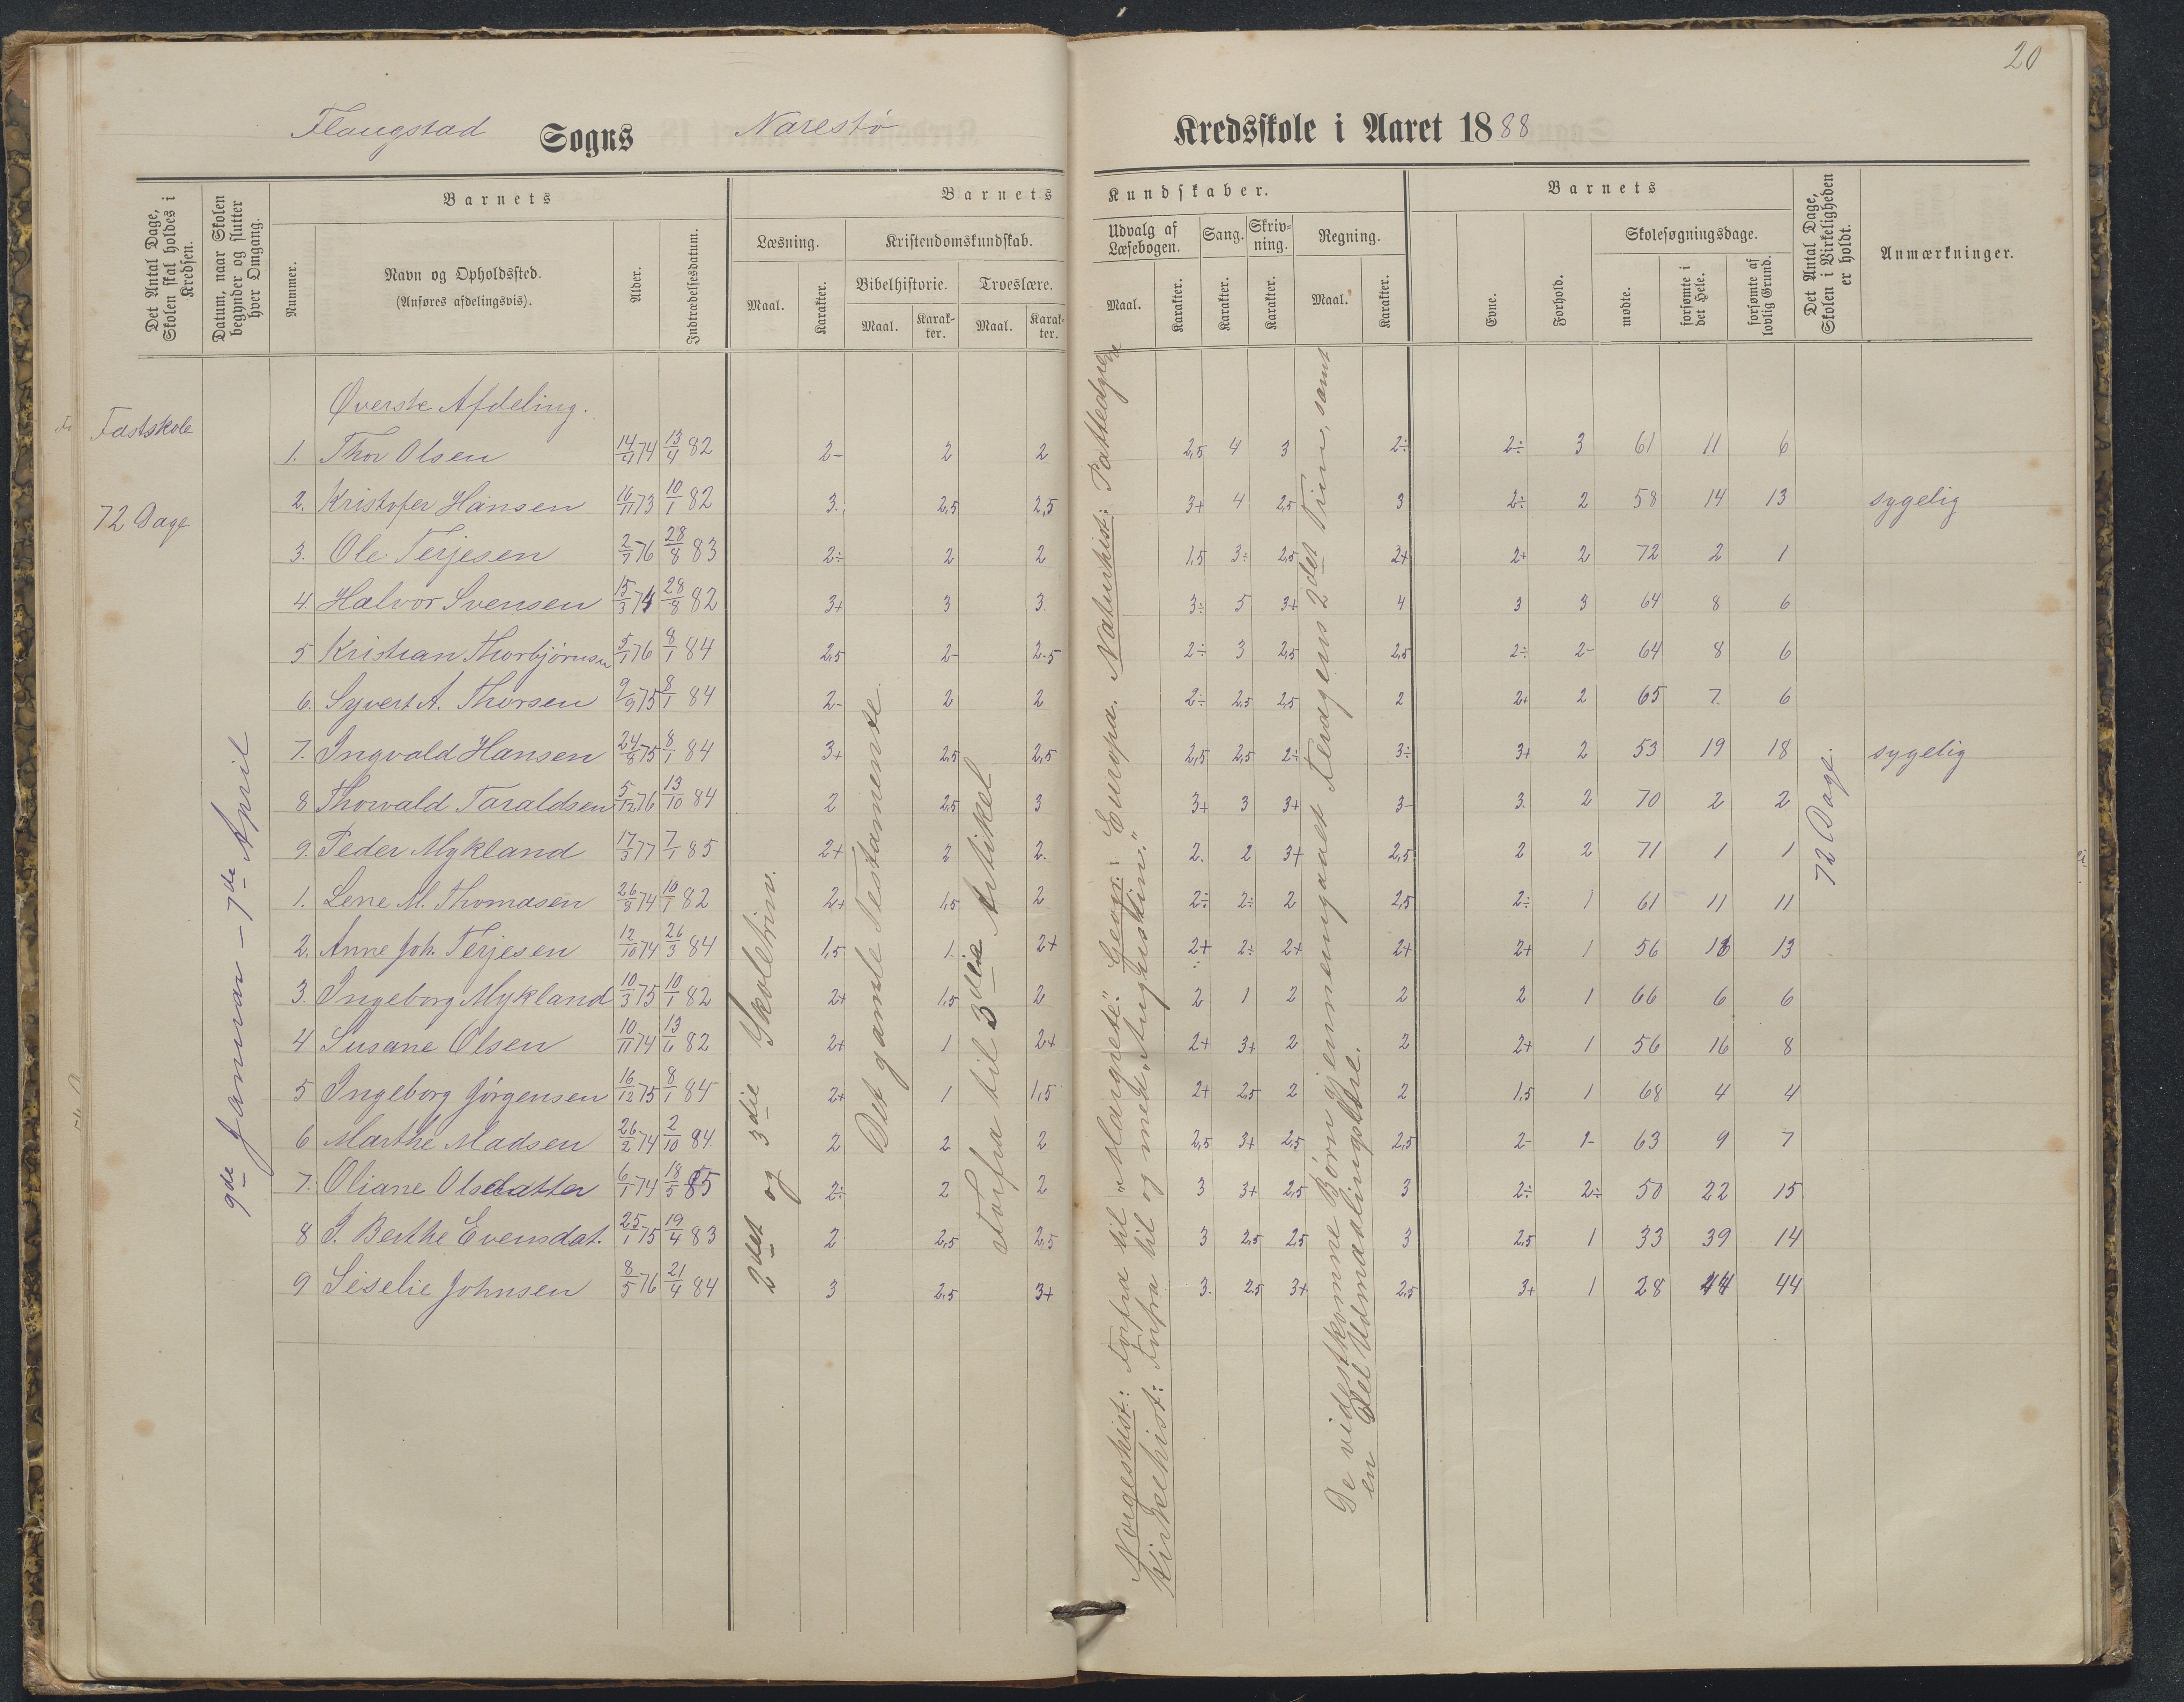 20
Flaugstad Sogns Narestø Kredsskole i Aaret 1888
Det Antal Dage, Skolen skal holdes i Kredsen.
Datum, naar Skolen begynder og slutter hver Omgang.
Barnets
Nummer.
Navn og Opholdssted.
(Anføres afdelingsvis).
Alder.
Indtrædelsesdatum.
Barnets Kundskaber.
Læsning.
Maal.
Karakter.
Kristendomskundskab.
Bibelhistorie.
Maal.
Karakter.
Troeslære.
Maal.
Karakter.
Udvalg af Læsebogen.
Maal.
Karakter.
Sang.
Karakter.
Skrivning.
Karakter.
Regning.
Maal.
Karakter.
Barnets
Evne.
Forhold.
Skolesøgningsdage.
mødte.
forsømte i det Hele.
forsømte af lovlig Grund.
Det Antal Dage, Skolen i Virkeligheden er holdt.
Anmærkninger.
Fastskole
72 Dage
9de Januar - 7de April
Øverste Afdeling.
1. Thor Olsen 14/4 74 13/4 82 2- 2 2 2,5 4 3 2÷ 2÷ 3 61 11 6
2. Kristofer Hansen 16/11 73 10/1 82 3. 2,5 2,5 3+ 4 2,5 3 2÷ 2 58 14 13 sygelig
3. Ole Terjesen 2/7 76 28/8 83 2÷ 2 2 1,5 3÷ 2,5 2+ 2+ 2 72 2 1
4. Halvor Svensen 15/3 74 28/8 82 3+ 3 3. 3÷ 5 3+ 4 3 3 64 8 6
5 Kristian Thorbjørnsen 5/1 76 8/1 84 2,5 2- 2.5 2÷ 3 2,5 2,5 2÷ 2- 64 8 6
6. Syvert A. Thorsen 9/9 75 8/1 84 2- 2 2 2÷ 2,5 2,5 2 2+ 2 65 7 6
7. Ingvald Hansen 24/8 75 8/1 84 3+ 2,5 2,5 2,5 2,5 2÷ 3÷ 3+ 2 53 19 18 sygelig
8 Thorvald Taraldsen 5/12 76 13/10 84 2 2,5 3 3+ 3 3+ 3- 3. 2 70 2 2
9. Peder Mykland 17/3 77 7/1 85 2+ 2 2. 2. 2 3+ 2,5 2 2 71 1 1
1. Lene M. Thomasen 26/8 74 10/1 82 2+ 1,5 2 2÷ 2÷ 2 2,5 2÷ 1 61 11 11
2. Anne Joh. Terjesen 12/10 74 26/3 84 1,5 1. 2+ 2+ 2÷ 2+ 2+ 2+ 1 56 16 13
3. Ingeborg Mykland 10/3 75 10/1 82 2+ 1,5 2 2 1 2 2 2 1 66 6 6
4 Susane Olsen 10/11 74 13/6 82 2+ 1 2+ 2+ 3+ 2 2 2+ 1 56 16 8
5 Ingeborg Jørgensen 16/12 75 8/1 84 2+ 1 1,5 2+ 2,5 2 2 1,5 1 68 4 4
6 Marthe Madsen 26/2 74 2/10 84 2 2 2 2,5 3+ 2,5 2,5 2- 1- 63 9 7
7. Oliane Olsdatter 6/1 74 18/5 85 2÷ 2 2 3 3+ 2,5 3 2÷ 2÷ 50 22 15
8 J. Berthe Evensdat. 25/1 75 19/4 83 2 2,5 2,5 3 2,5 2,5 3 2,5 1 33 39 14
9 Siselie Johnsen 8/5 76 21/4 84 3 2,5 3+ 3. 2,5 3+ 2,5 3+ 1 28 44 44
2det og 3die Skoletrin.
Det gamle Testamente.
Forfra til 3die Artikel
Norgeshist: Forfra til "Margrete." Geogr: Europa. Naturhist: Pattedyrene
Kirkehist: Forfra til og med "Augustin."
De videstkomne Børn gjennemgaaet Ferdgens 2det Trin, samt
en Del Udmaalingslære.
72 Dage.